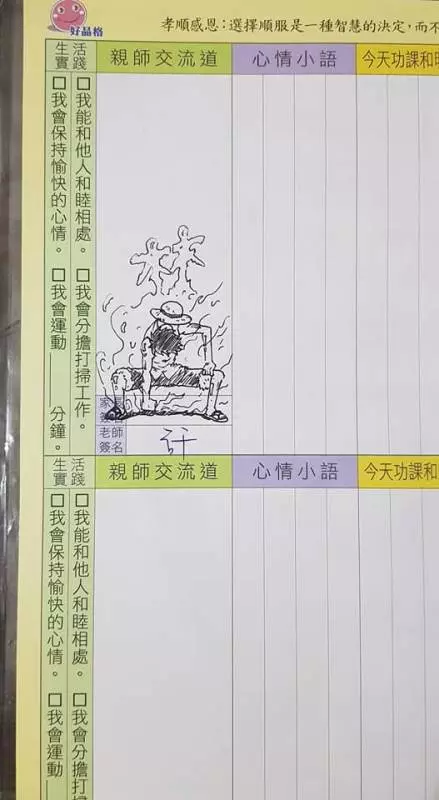 好品格
孝順感恩：選擇順服是一種智慧的決定，而不
生活
實踐
親師交流道
心情小語
今天功課和
□我能和他人和睦相處。 □我會分擔打掃工作。
□我會保持愉快的心情。 □我會運動 分鐘。
林
家長
簽名
老師
簽名
生活
實踐
親師交流道
心情小語
今天功課和
□我能和他人和睦相處。 □我會分擔打掃
□我會保持愉快的心情。 □我會運動